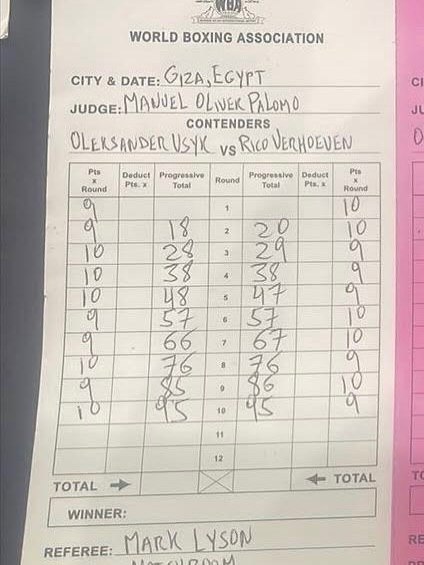 WBA
WORLD BOXING ASSOCIATION
CITY & DATE: GIZA, EGYPT
JUDGE: MANUEL OLIVER PALOMO
CONTENDERS
OLEKSANDER USYK VS RICO VERHOEVEN
Pts x Round Deduct Pts. x Progressive Total Round Progressive Total Deduct Pts. x Pts x Round
9 1 10
9 18 2 20 10
10 28 3 29 9
10 38 4 38 9
10 48 5 47 9
9 57 6 57 10
9 66 7 67 10
10 76 8 76 9
9 85 9 86 10
10 95 10 95 9
11
12
TOTAL TOTAL
WINNER:
REFEREE: MARK LYSON